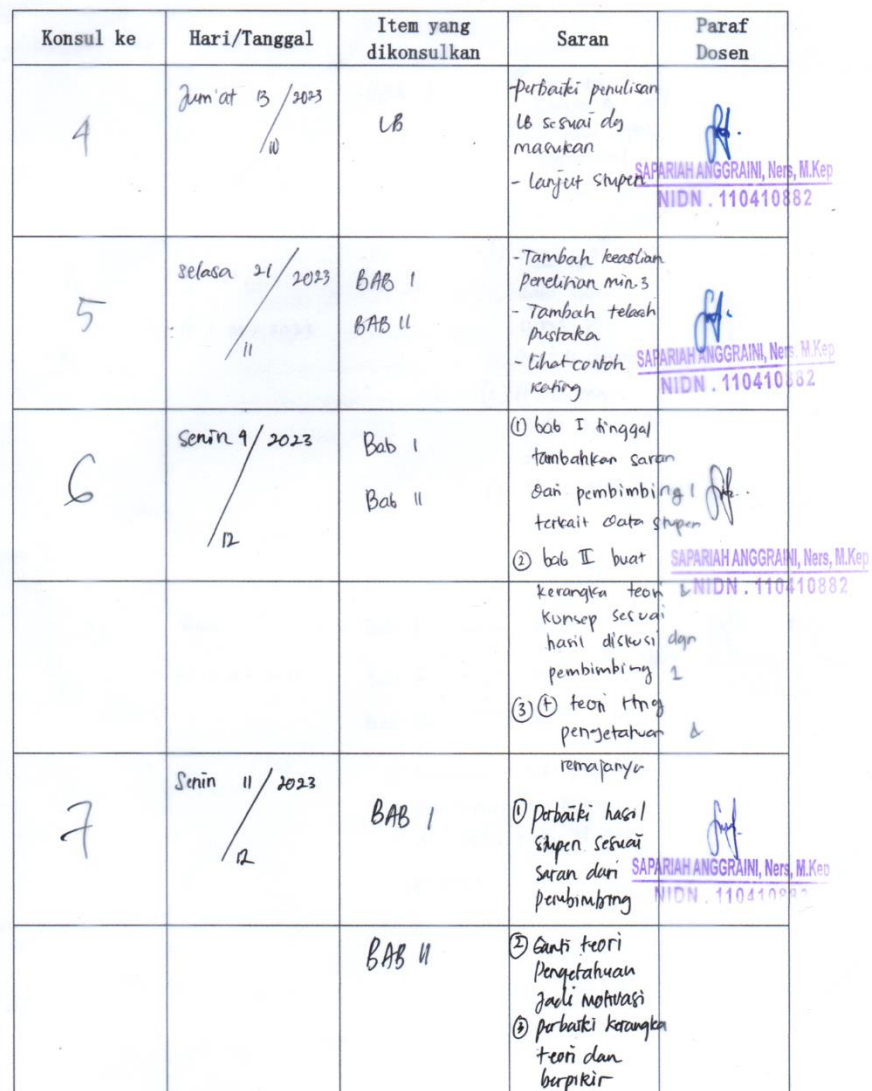 Konsul ke Hari/Tanggal Item yang dikonsulkan Saran Paraf Dosen
4
Jum'at 13/2023
10
LB
-perbaiki penulisan
LB sesuai dg
masukan
- lanjut stupen
SAPARIAH ANGGRAINI, Ners, M.Kep
NIDN . 110410882
5
selasa 21/2023
11
BAB I
BAB II
-Tambah keaslian
penelitian min.3
- Tambah telaah
pustaka
- lihat contoh
kating
SAPARIAH ANGGRAINI, Ners, M.Kep
NIDN . 110410882
6
Senin 4/2023
12
Bab I
Bab II
① bab I tinggal
tambahkan saran
dari pembimbing 1
terkait data stupen
② bab II buat
kerangka teori &
konsep sesuai
hasil diskusi dgn
pembimbing 1
③ (+) teori ttng
pengetahuan &
remajanya
SAPARIAH ANGGRAINI, Ners, M.Kep
NIDN . 110410882
7
Senin 11/2023
12
BAB I
① Perbaiki hasil
stupen sesuai
saran dari
pembimbing
SAPARIAH ANGGRAINI, Ners, M.Kep
NIDN . 110410882
BAB II
② Ganti teori
Pengetahuan
Jadi motivasi
③ perbaiki kerangka
teori dan
berpikir